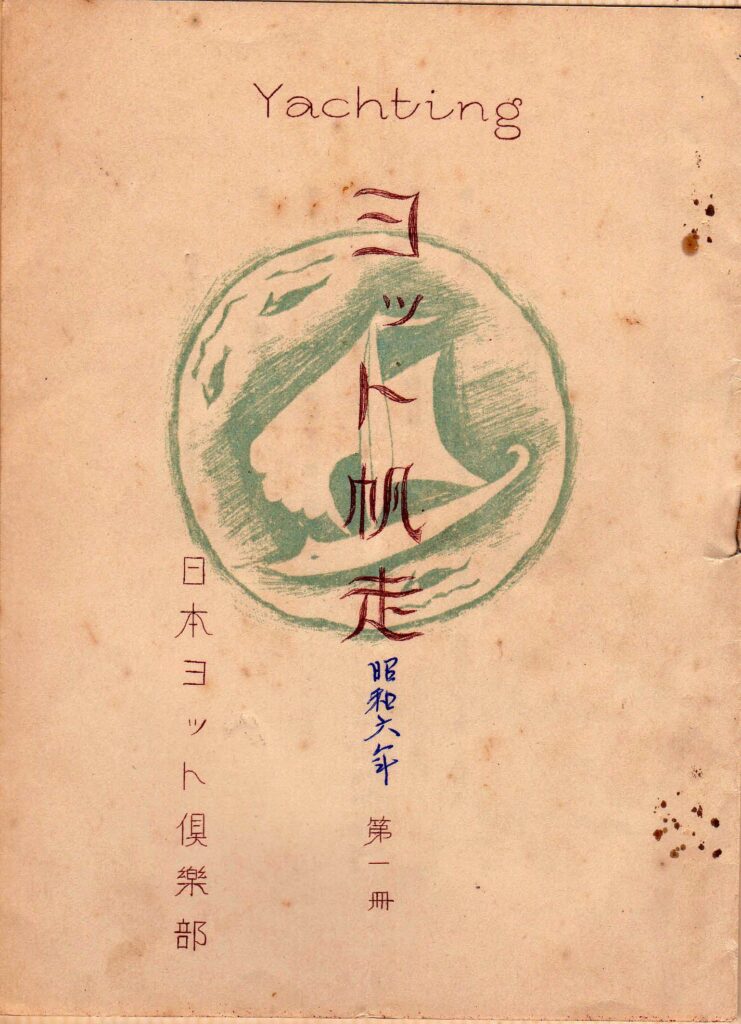 Yachting
ヨット帆走
昭和六年
第一冊
日本ヨット倶樂部